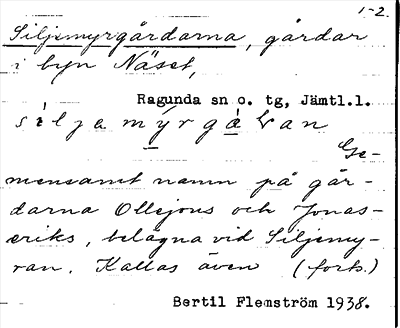 1-2.
Siljemyrgårdarna, gårdar
i byn Näset,
Ragunda sn o. tg, Jämtl.l.
Ge-
mensamt namn på går-
darna Ollejons och Jonas-
eriks, belägna vid Siljemy-
ran. Kallas även (forts.)
Bertil Flemström 1938.